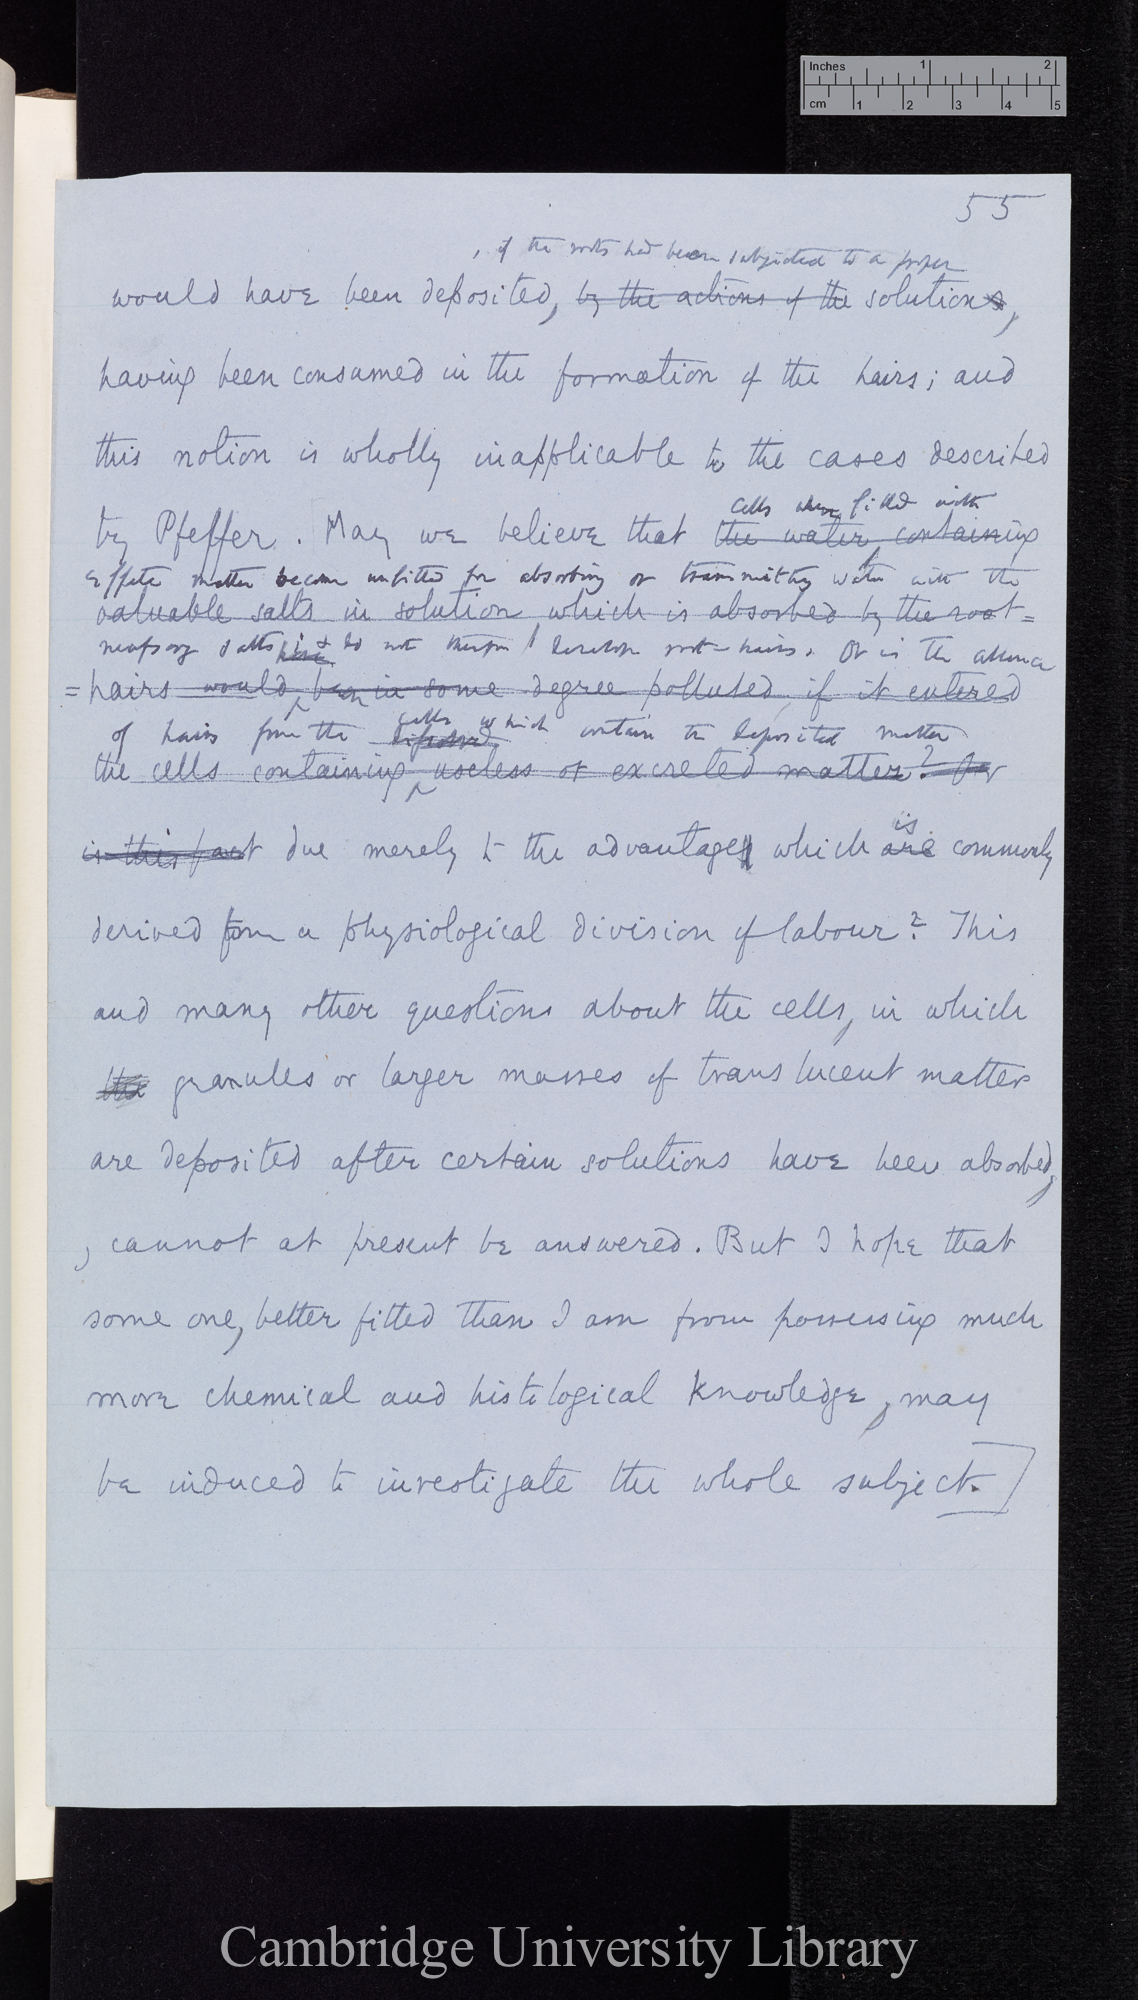 Inches 1 2
cm 1 2 3 4 5
55
, if the roots had been subjected to a proper
would have been deposited, by the actions of the solutions,
having been consumed in the formation of the hairs; and
this notion is wholly inapplicable to the cases described
by Pfeffer. May we believe that the water containing
cells when filled with
effete matter become unfitted for absorbing or transmitting water with the
valuable salts in solution which is absorbed by the root=
necessary salts & do not therefore develope root-hairs. Or is the absence
=hairs would, been in some degree polluted, if it entered
of hairs from the cells which contain the deposited matter
the cells containing useless or excreted matter? Or
is this fact due merely to the advantage which are commonly
is
derived from a physiological division of labour? This
and many other questions about the cells, in which
the granules or larger masses of translucent matter
are deposited after certain solutions have been absorbed,
, cannot at present be answered. But I hope that
some one, better fitted than I am from possessing much
more chemical and histological knowledge, may
be induced to investigate the whole subject.]
Cambridge University Library